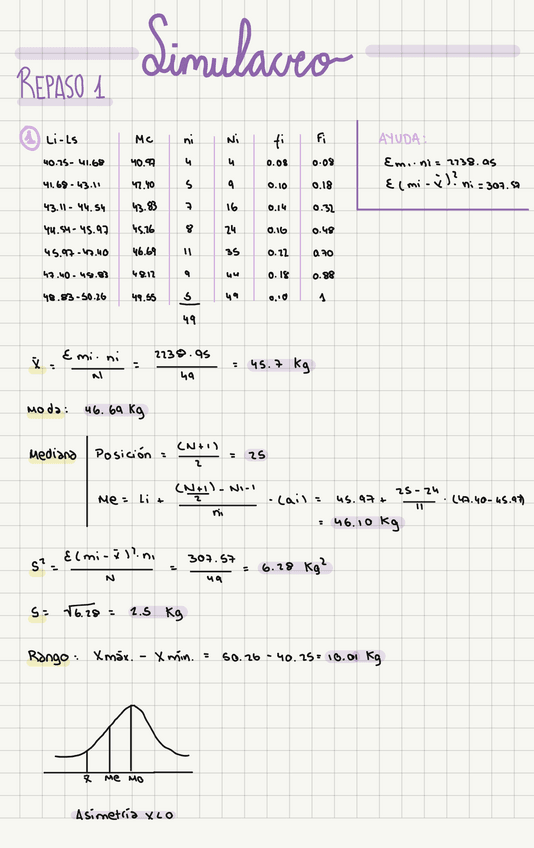 Simulacro
REPASO 1
1 Li-Ls Mc ni Ni fi Fi
40.25-41.68 40.97 4 4 0.08 0.08
41.68-43.11 42.40 5 9 0.10 0.18
43.11-44.54 43.83 7 16 0.14 0.32
44.54-45.97 45.26 8 24 0.16 0.48
45.97-47.40 46.69 11 35 0.22 0.70
47.40-48.83 48.12 9 44 0.18 0.88
48.83-50.26 49.55 5 49 0.10 1
49
AYUDA:
Σmi.ni = 2238.95
Σ(mi-x̄)².ni = 307.57
x̄ = Σmi.ni / N = 2238.95 / 49 = 45.7 Kg
Moda: 46.69 Kg
Mediana Posición = (N+1) / 2 = 25
Me = Li + ((N+1)/2 - Ni-1) / ni · (ai) = 45.97 + 25-24 / 11 · (47.40-45.97)
= 46.10 Kg
S² = Σ(mi-x̄)².ni / N = 307.57 / 49 = 6.28 Kg²
S = √6.28 = 2.5 Kg
Rango: Xmáx. - Xmin. = 50.26 - 40.25 = 10.01 Kg
x̄ Me Mo
Asimetría x<0